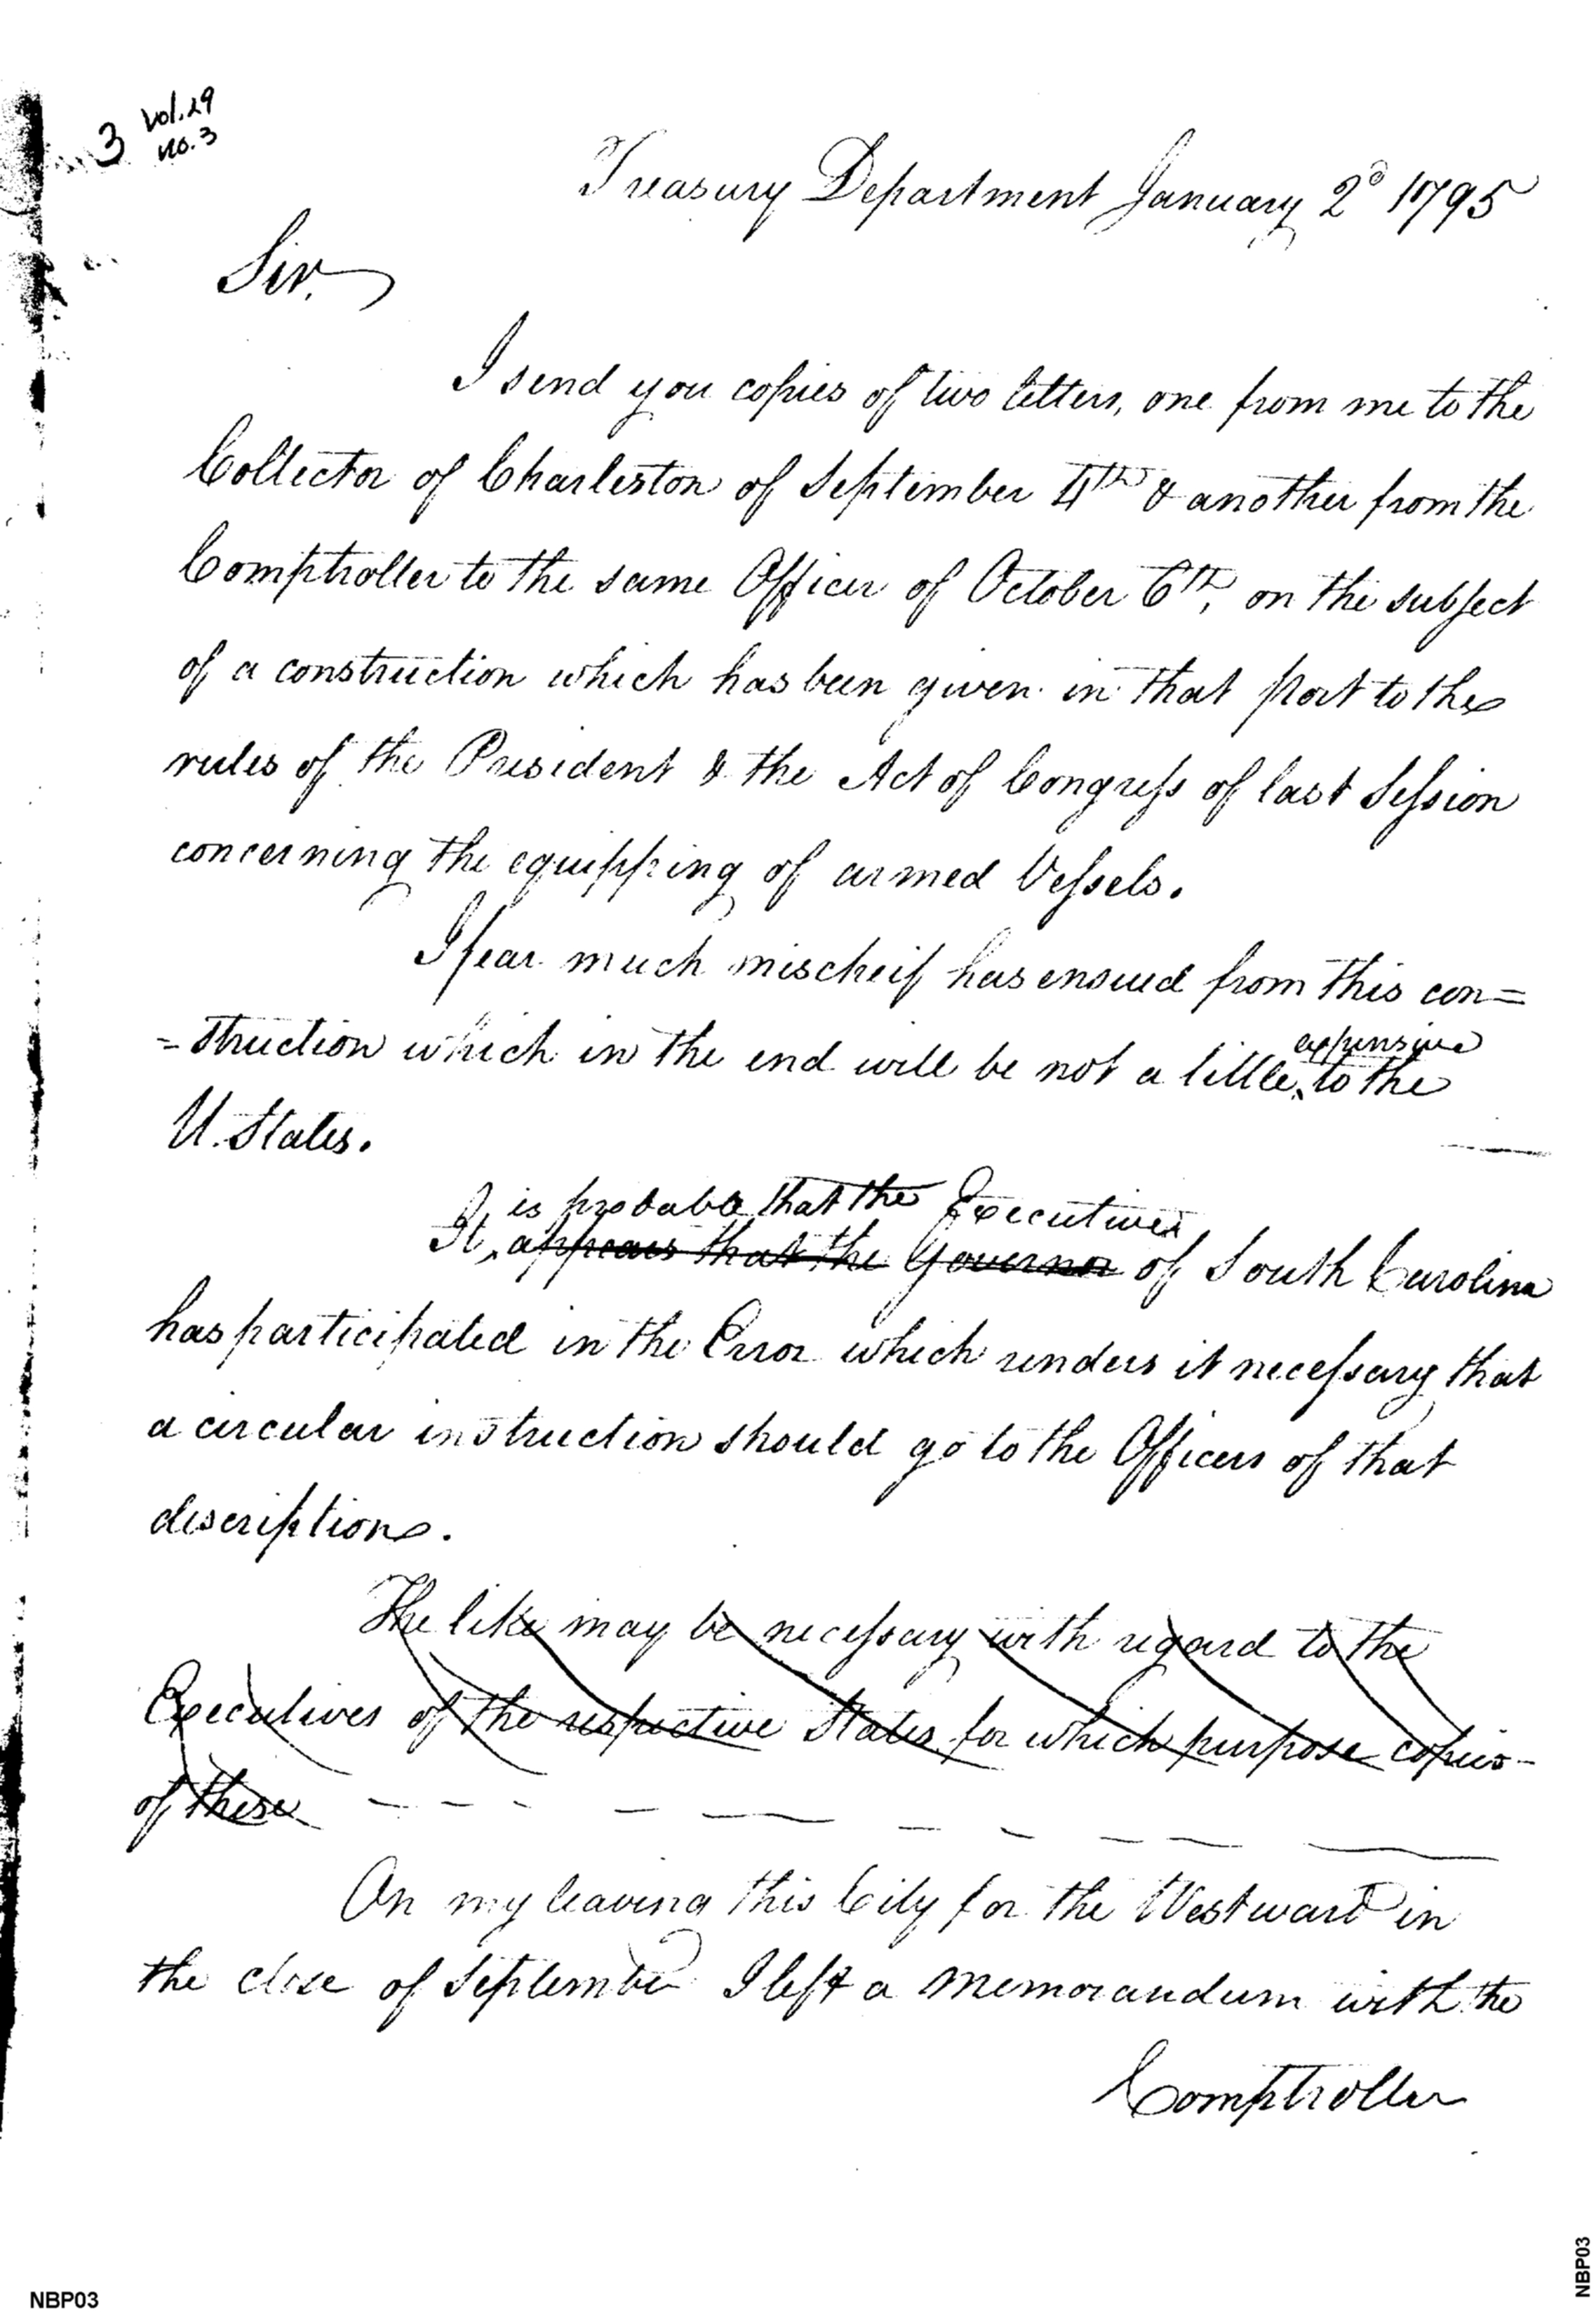 3 Vol. 29
no. 3
Treasury Department January 2d 1795
Sir.
I send you copies of two letters, one from me to the
Collector of Charleston of September 4th & another from the
Comptroller to the same Officer of October 6th, on the subject
of a construction which has been given in that Port to the
rules of the President & the Act of Congress of last Session
concerning the equipping of armed Vessels.
I fear much mischeif has ensued from this con=
=struction which in the end will be not a little expensive to the
U. States.
is probable that the Executive
It appears that the Governor of South Carolina
has participated in the Error which renders it necessary that
a circular instruction should go to the Officers of that
description.
The like may be necessary with regard to the
Executives of the respective States for which purpose copies
of these
On my leaving this City for the Westward in
the close of September I left a memorandum with the
Comptroller
NBP03
NBP03